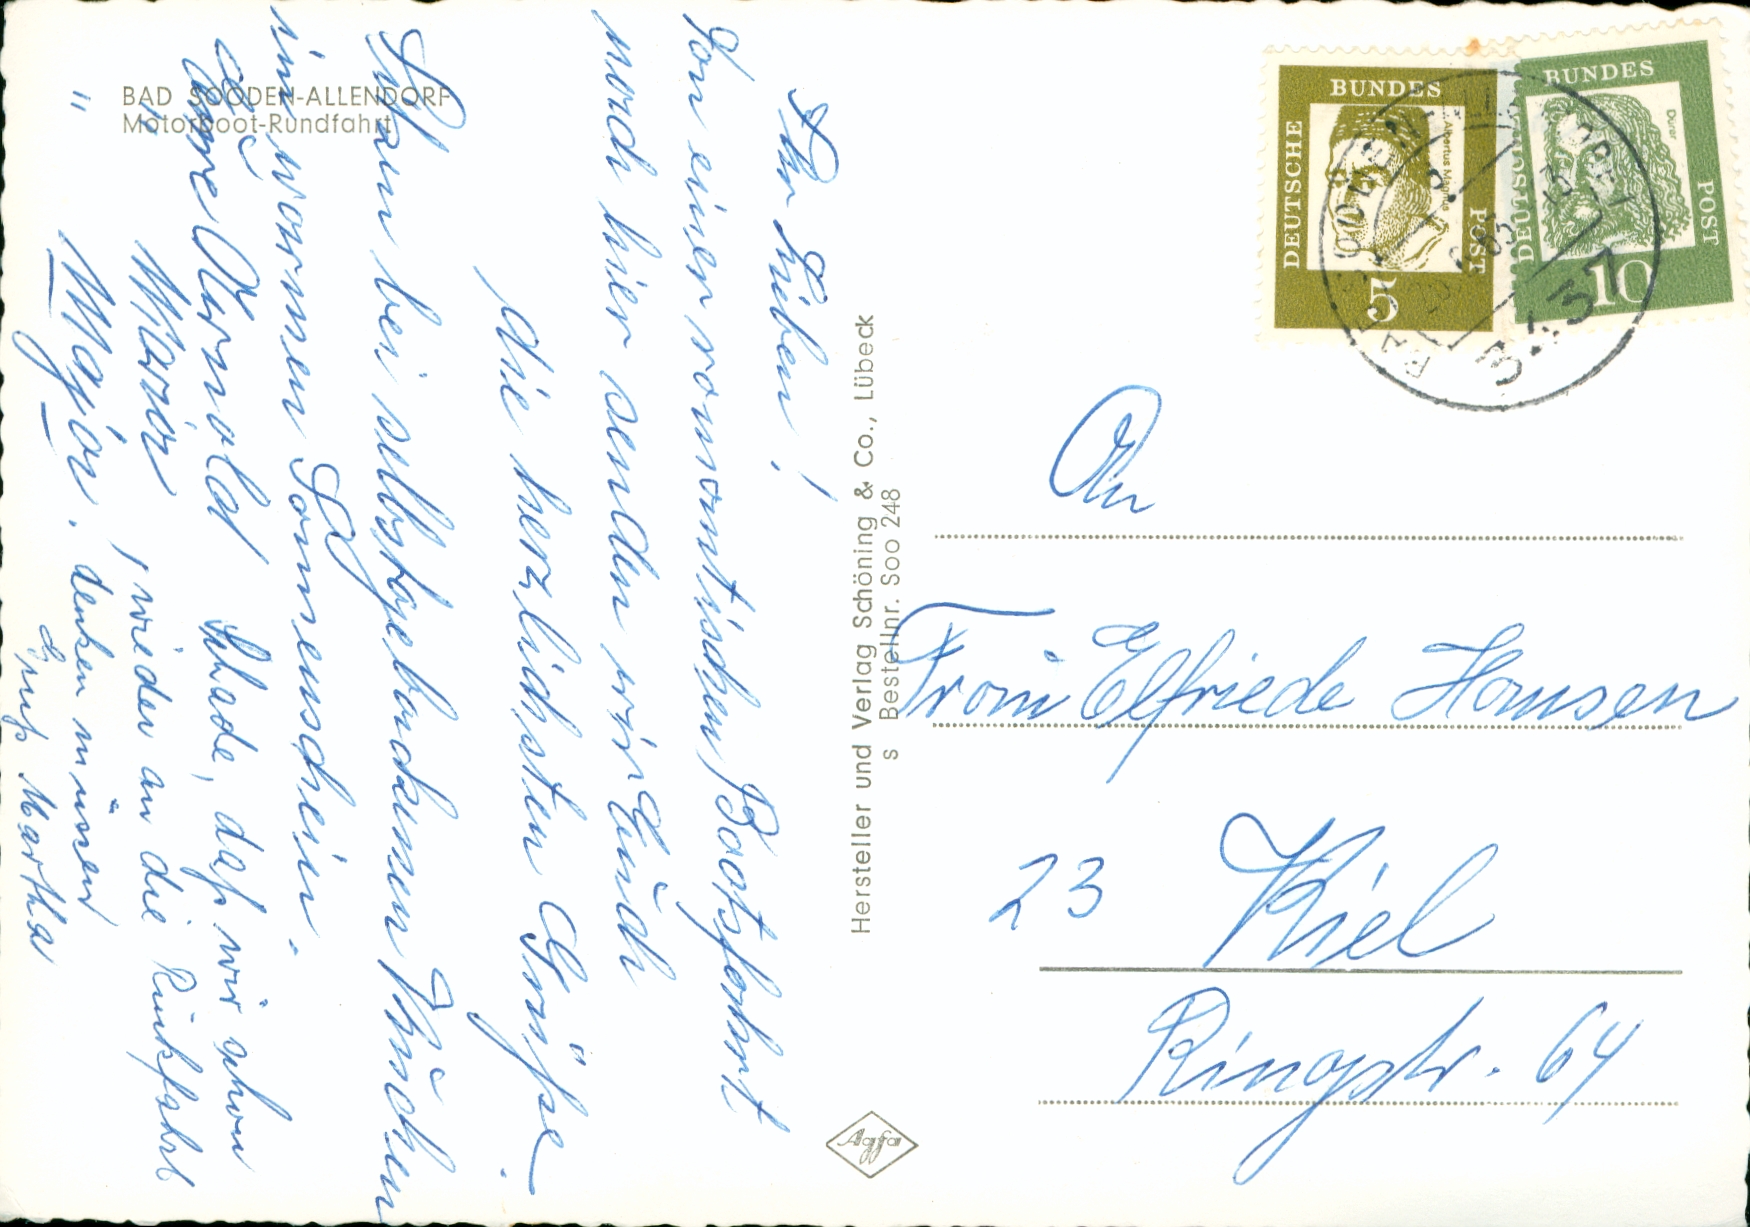 BAD SOODEN-ALLENDORF
Motorboot-Rundfahrt
Ihr Lieben!
Von einer romantischen Bootsfahrt
noch hier senden wir Euch
die herzlichsten Grüße.
Sitzen bei selbstgebackenem Kuchen
im warmen Sonnenschein.
Eure Arnold
" Maria
" Magda.
Schade, daß wir schon
wieder an die Rückfahrt
denken müssen
Gruß Martha
Hersteller und Verlag Schöning & Co., Lübeck
s Bestellnr. Soo 248
Agfa
DEUTSCHE BUNDES POST
Albertus Magnus
5
DEUTSCHE BUNDES POST
Dürer
10
3437
An
Frau Elfriede Hansen
23 Kiel
Ringstr. 64